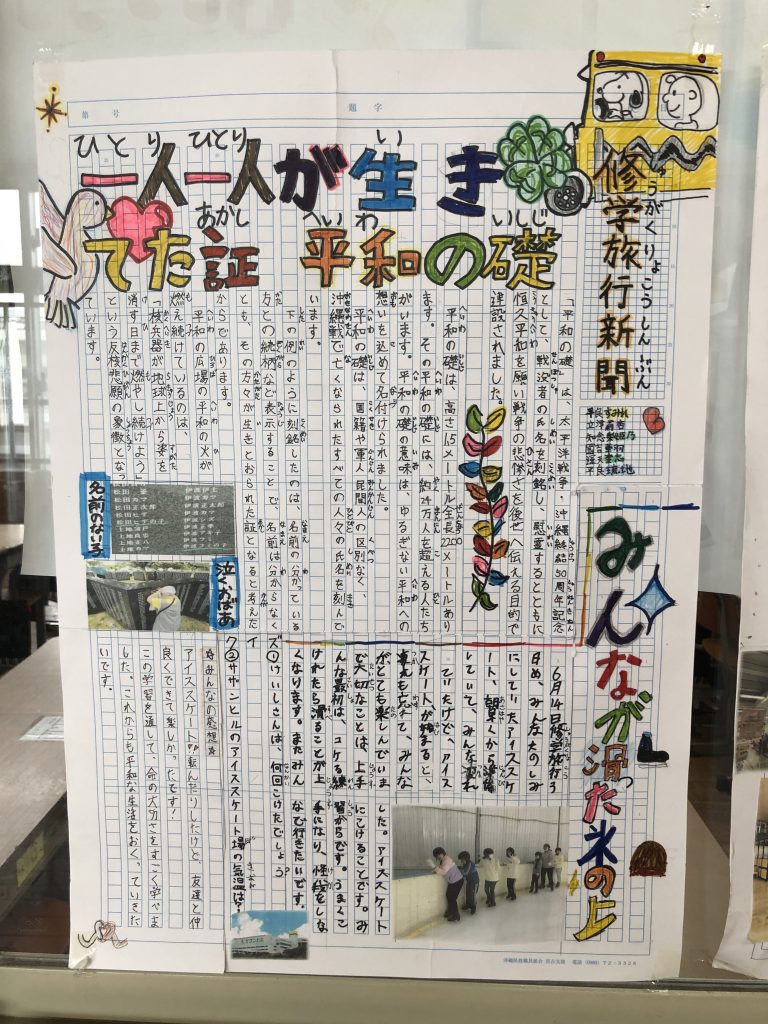 第　号
題字
修学旅行新聞
しゅうがくりょこうしんぶん
一人一人が生き
ひとり ひとり い
てた証　平和の礎
あかし へいわ いしじ
「平和の礎」は、太平洋戦争・沖縄終結50周年記念
として、戦没者の氏名を刻銘し、慰霊するとともに
恒久平和を願い戦争の悲惨さを後世へ伝える目的で
建設されました。
平和の礎は、高さ1.5メートル全長2200メートルあり
ます。その平和の礎には、約24万人を超える人たち
がいます。平和の礎の意味は、ゆるぎない平和への
想いを込めて名付けられました。
平和の礎は、国籍や軍人、民間人の区別なく、
沖縄戦で亡くなられたすべての人々の氏名を刻んで
います。
下の例のように刻銘したのは、名前の分かっている
方との続柄など表示することで、名前は分からなく
とも、その方々が生きとおられた証となると考えた
からであります。
平和の広場の平和の火が
燃え続けているのは、
「核兵器が地球上から姿を
消す日まで燃やし続けよう」
という反核悲願の象徴となっ
ています。
名前のない子
泣くおばあ
みんなが滑った氷の上
6月14日修学旅行3
日め、みんなたのしみ
にしていたアイススケ
ート、朝早くから活動
していて、みんな疲れ
ていたけど、アイス
スケートが始まると、
疲れも忘れて、みんな
がとても楽しんでいま
した。アイススケート
で大切なことは、上手
にこけることです。み
んな最初は、コケる練
習からです。うまくこ
けれたら滑ることが上
手になり、怪我をしな
くなります。またみん
なで行きたいです。
クイズ
①けいしさんは、何回こけたでしょう？
②サザンヒルのアイススケート場の気温は？
☆みんなの感想☆
アイススケートで転んだりしたけど、友達と仲
良くできて楽しかったです！
この学習を通して、命の大切さをすごく学べま
した。これからも平和な生活をおくっていきた
いです。
沖縄県教職員組合 宮古支部 電話(0980)72-3326